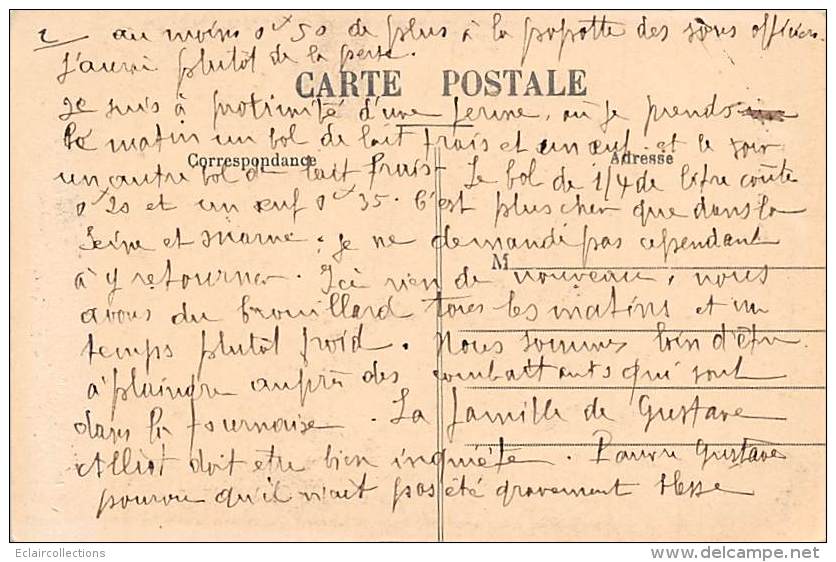 2 au moins 0f50 de plus à la popotte des sous officiers.
J'aurai plutôt de la perte.
CARTE POSTALE
Je suis à protimité d'une ferme, où je prends
le matin un bol de lait frais et un œuf et le soir
Correspondance
Adresse
un autre bol de lait frais. Le bol de 1/4 de litre coûte
0f20 et un œuf 0f35. C'est plus cher que dans la
Seine et Marne. Je ne demandé pas cependant
M
à y retourner. Ici rien de nouveau, nous
avons du brouillard tous les matins et un
temps plutôt froid. Nous sommes loin d'être
à plaindre auprès des combattants qui sont
dans la fournaise. La famille de Gustave
Alliot doit être bien inquiète. Pauvre Gustave
pourvu qu'il n'ait pas été gravement blessé
Eclaircollections
www.delcampe.net